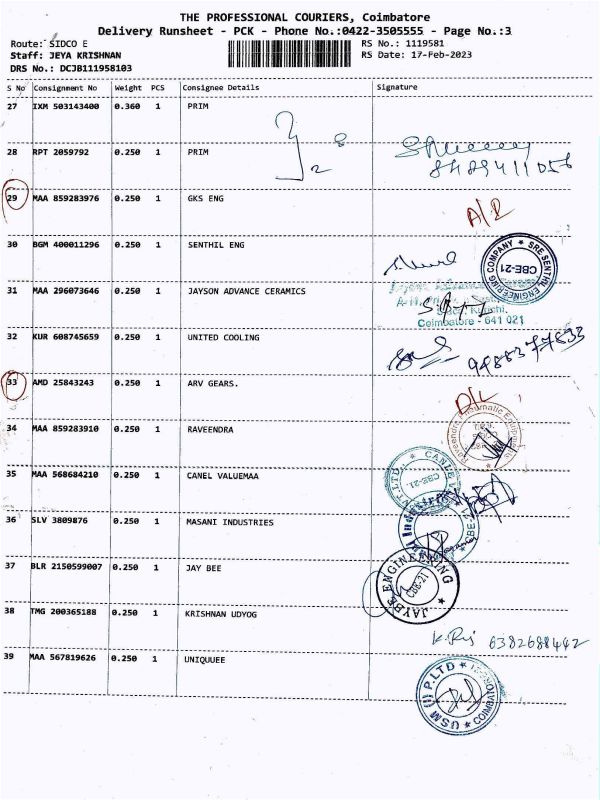 THE PROFESSIONAL COURIERS, Coimbatore
Delivery Runsheet - PCK - Phone No.:0422-3505555 - Page No.:3
Route: SIDCO E RS No.: 1119581
Staff: JEYA KRISHNAN RS Date: 17-Feb-2023
DRS No.: DCJB111958103
S No Consignment No Weight PCS Consignee Details Signature
27 IXM 503143400 0.360 1 PRIM
28 RPT 2059792 0.250 1 PRIM
29 MAA 859283976 0.250 1 GKS ENG
30 BGM 400011296 0.250 1 SENTHIL ENG
SRE SENTHIL ENGINEERING COMPANY
CBE-21
31 MAA 296073646 0.250 1 JAYSON ADVANCE CERAMICS
Coimbatore - 641 021
32 KUR 608745659 0.250 1 UNITED COOLING
33 AMD 25843243 0.250 1 ARV GEARS.
34 MAA 859283910 0.250 1 RAVEENDRA
35 MAA 568684210 0.250 1 CANEL VALUEMAA
CBE-21.
36 SLV 3809876 0.250 1 MASANI INDUSTRIES
37 BLR 2150599007 0.250 1 JAY BEE
JAYBE ENGINEERING
CBE-21
38 TMG 200365188 0.250 1 KRISHNAN UDYOG
6382688442
39 MAA 567819626 0.250 1 UNIQUUEE
USM (I) P.LTD
COIMBATORE